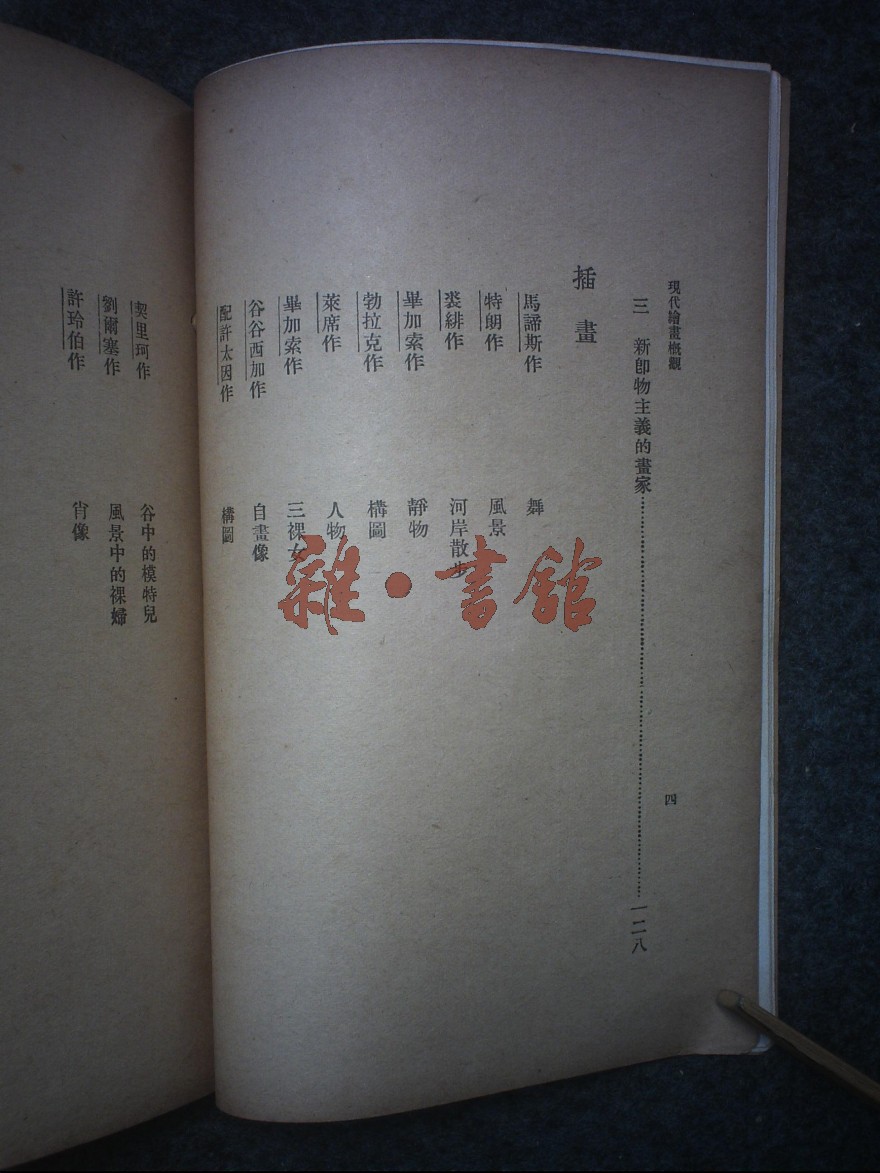 現代繪畫概觀 四
三 新卽物主義的畫家 一二八
插畫
馬諦斯作 舞
特朗作 風景
裘緋作 河岸散步
畢加索作 靜物
勃拉克作 構圖
萊席作 人物
畢加索作 三裸女
谷谷西加作 自畫像
配許太因作 構圖
契里珂作 谷中的模特兒
劉爾塞作 風景中的裸婦
許玲伯作 肖像
雜·書館